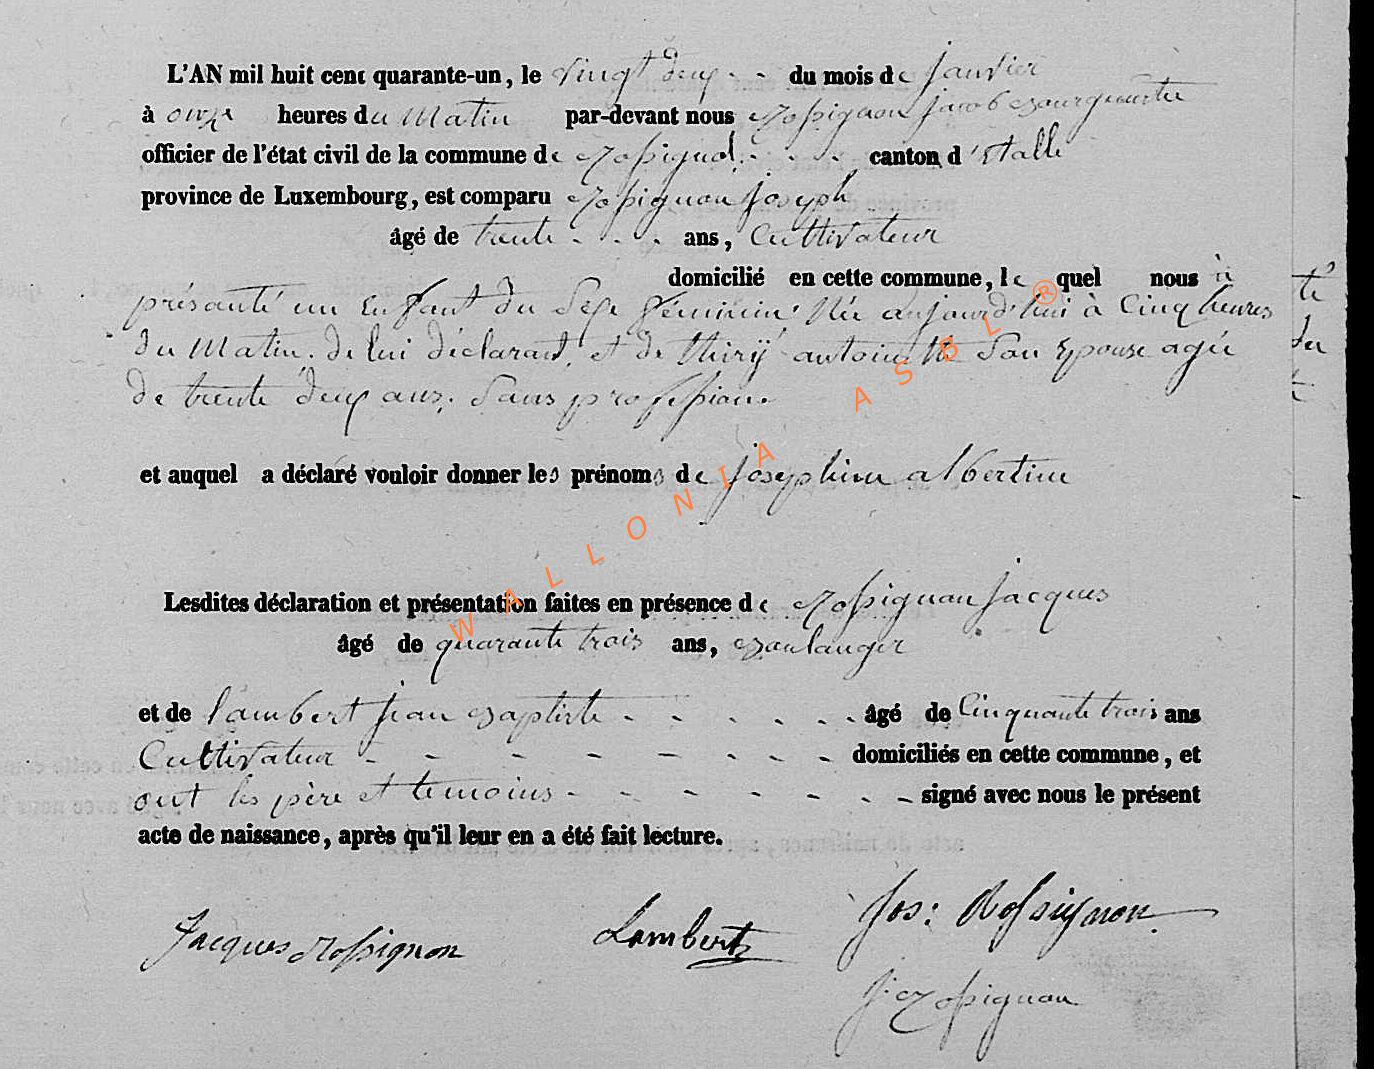 L'AN mil huit cent quarante-un, le vingt deux - - du mois de janvier
à onze heures du Matin par-devant nous Rossignon jacob Bourguestre
officier de l'état civil de la commune de Rossignol - - - canton d'Etalle
province de Luxembourg, est comparu Rossignon joseph
âgé de trente - - - ans, Cultivateur
domicilié en cette commune, lequel nous à
présanté un Enfant du Sexe féminin Née aujourd'hui à Cinq heures
du Matin. de lui déclarant, et de thirÿ antoinette Son Epouse agée
de trente deux ans. Sans profession.
et auquel a déclaré vouloir donner les prénoms de josephine albertine
Lesdites déclaration et présentation faites en présence de Rossignon jacques
âgé de quarante trois ans, Boulanger
et de lambert jean Baptiste - - - - - - âgé de Cinquante trois ans
Cultivateur - - - - - - - - - domiciliés en cette commune, et
ont les père et temoins - - - - - - - - signé avec nous le présent
acte de naissance, après qu'il leur en a été fait lecture.
Jacques Rossignon Lambert Jos: Rossignon
J. Rossignon
té
du
WALLONIA ASBL ®